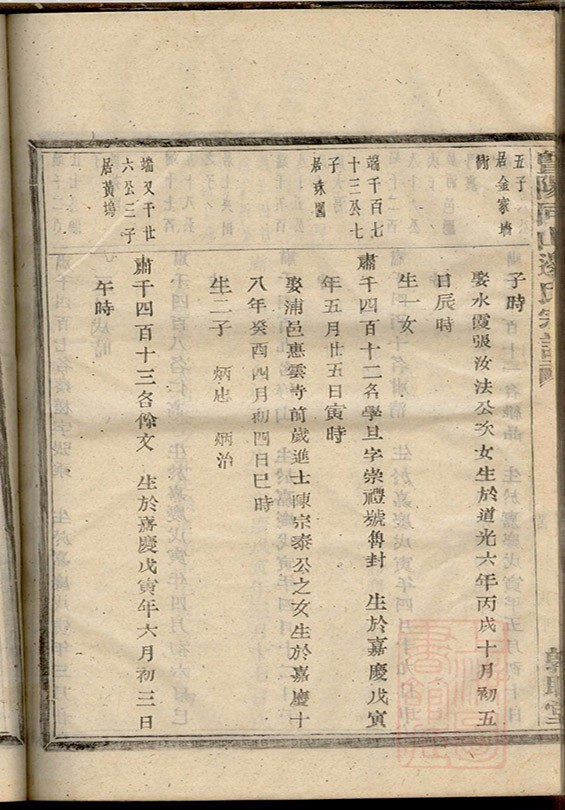 五子
居金家墻
衕
子時
娶水霞張汝法公次女生於道光六年丙戌十月初五
日辰時
生一女
端千百七
十三公七
子
居珠園
肅千四百十二名學旦字崇禮號魯封 生於嘉慶戊寅
年五月廿五日寅時
娶浦邑惠雲寺前歲進士陳宗泰公之女生於嘉慶十
八年癸酉四月初四日巳時
生二子 炳忠 炳治
端又千廿
六公三子
居黃塢
肅千四百十三名餘文 生於嘉慶戊寅年六月初三日
午時